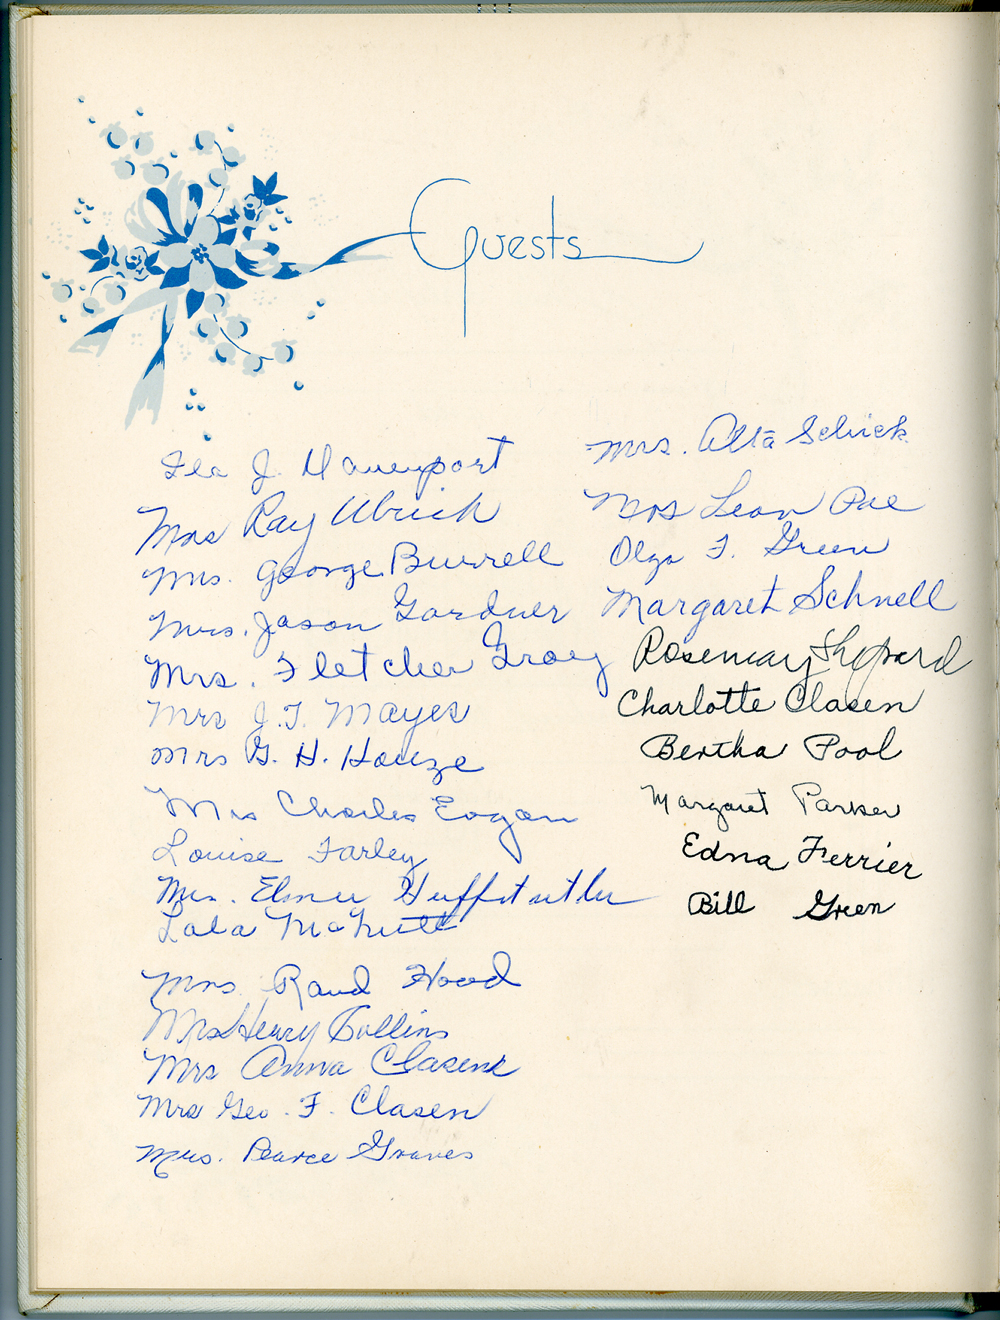 Guests
J. Davenport
Mrs Ray Ulrich
Mrs. George Burrell
Mrs. Jason Gardner
Mrs. Fletcher Gray
Mrs J. T. Mayes
Mrs G. H. Houze
Mrs Charles Eogan
Louise Farley
Mrs. Elmer Huffstutler
Lala McNutt
Mrs. Rand Hood
Mrs Henry Collins
Mrs Anna Clasen
Mrs Geo. F. Clasen
Mrs. Pearce Graves
Mrs. Alta Schick
Mrs Leon Pae
Olga F. Green
Margaret Schnell
Rosemary Shepard
Charlotte Clasen
Bertha Pool
Margaret Parker
Edna Ferrier
Bill Green